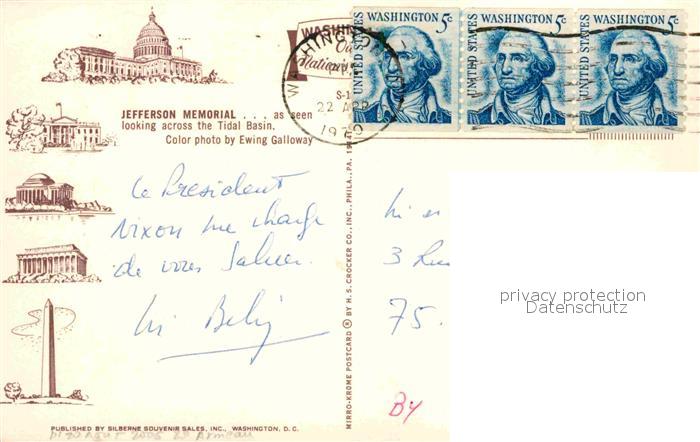 WASHINGTON
Our
National
WASHINGTON
22 APR
UNITED STATES
WASHINGTON 5c
UNITED STATES
WASHINGTON 5c
UNITED STATES
WASHINGTON 5c
JEFFERSON MEMORIAL . . . as seen
looking across the Tidal Basin.
Color photo by Ewing Galloway
Le President
Nixon me charge
de vous saluer.
3 Rue
75.
By
privacy protection
Datenschutz
MIRRO-KROME POSTCARD ® BY H. S. CROCKER CO., INC., PHILA., PA.
PUBLISHED BY SILBERNE SOUVENIR SALES, INC., WASHINGTON, D. C.